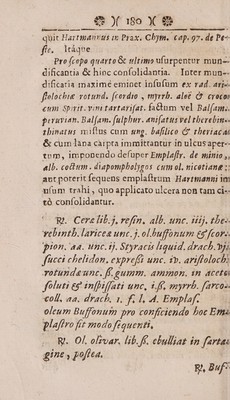 ( 180 )
quit Hartmannus in Prax. Chym. cap. 97. de Pe-
ste. Itáque
Pro scopo quarto & ultimo usurpentur mun-
dificantia & hinc consolidantia. Inter mun-
dificaria maximè eminet infusum ex rad. ari-
stolochiæ rotund. scordio, myrrh. aloë & croco
cum Spirit. vini tartarisat. factum vel Balsam.
peruvian. Balsam. sulphur. anisatus vel therebin-
thinatus mistus cum ung. basilico & theriaca
& cum lana carpta immittantur in ulcus aper-
tum, imponendo desuper Emplastr. de minio,
alb. coctum. diapompholygos cum ol. nicotianæ:
aut poterit sequens emplastrum Hartmanni in
usum trahi, quo applicato ulcera non tam ci-
tò consolidantur.
℞. Ceræ lib. j. resin. alb. unc. iiij. the-
rebinth. lariceæ unc. j. ol. buffonum & scor-
pion. aa. unc. ij. Styracis liquid. drach. vj.
succi chelidon. expressi unc. iv. aristoloch.
rotundæ unc. ß. gumm. ammon. in aceto
soluti & inspissati unc. i. ß. myrrh. sarco-
coll. aa. drach. i. f. l. A. Emplas.
oleum Buffonum pro conficiendo hoc Em-
plastro fit modo sequenti.
℞. Ol. olivar. lib. ß. ebulliat in sarta-
gine, postea.
℞. Buf-